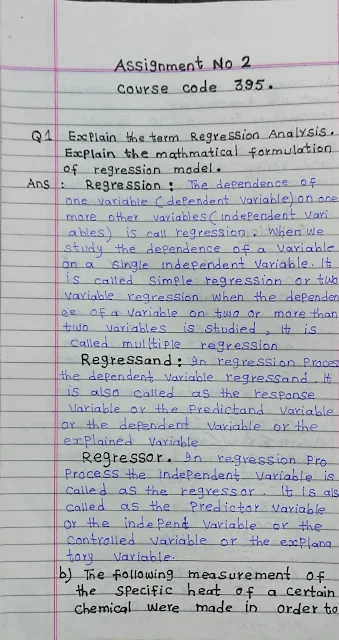 Assignment No 2
Course code 395.
Q1 Explain the term Regression Analysis.
Explain the mathmatical formulation
of regression model.
Ans : Regression : The dependence of
one variable (dependent variable) on one
more other variables (independent vari
ables) is call regression. When we
study the dependence of a variable
on a single independent variable. It
is called simple regression or two
variable regression when the dependen
ce of a variable on two or more than
two variables is studied, it is
called multiple regression
Regressand : In regression Proces
the dependent variable regressand. It
is also called as the response
variable or the Predictand variable
or the dependent variable or the
explained variable
Regressor. In regression Pro
Process the independent variable is
called as the regressor. It is als
called as the Predictor variable
or the indepent variable or the
controlled variable or the explana
tory variable.
b) The following measurement of
the specific heat of a certain
chemical were made in order to